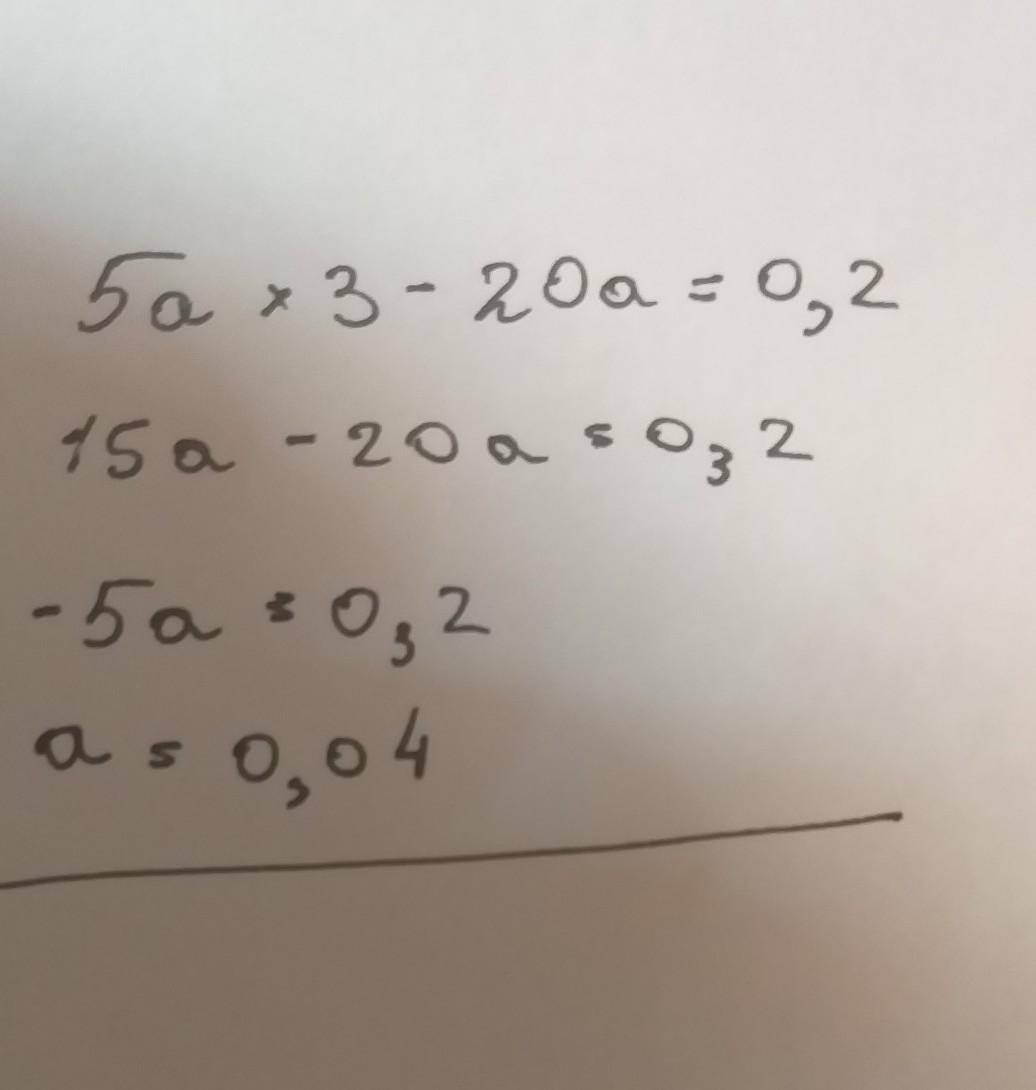 5a × 3 - 20a = 0,2
15a - 20a = 0,2
-5a = 0,2
a = 0,04